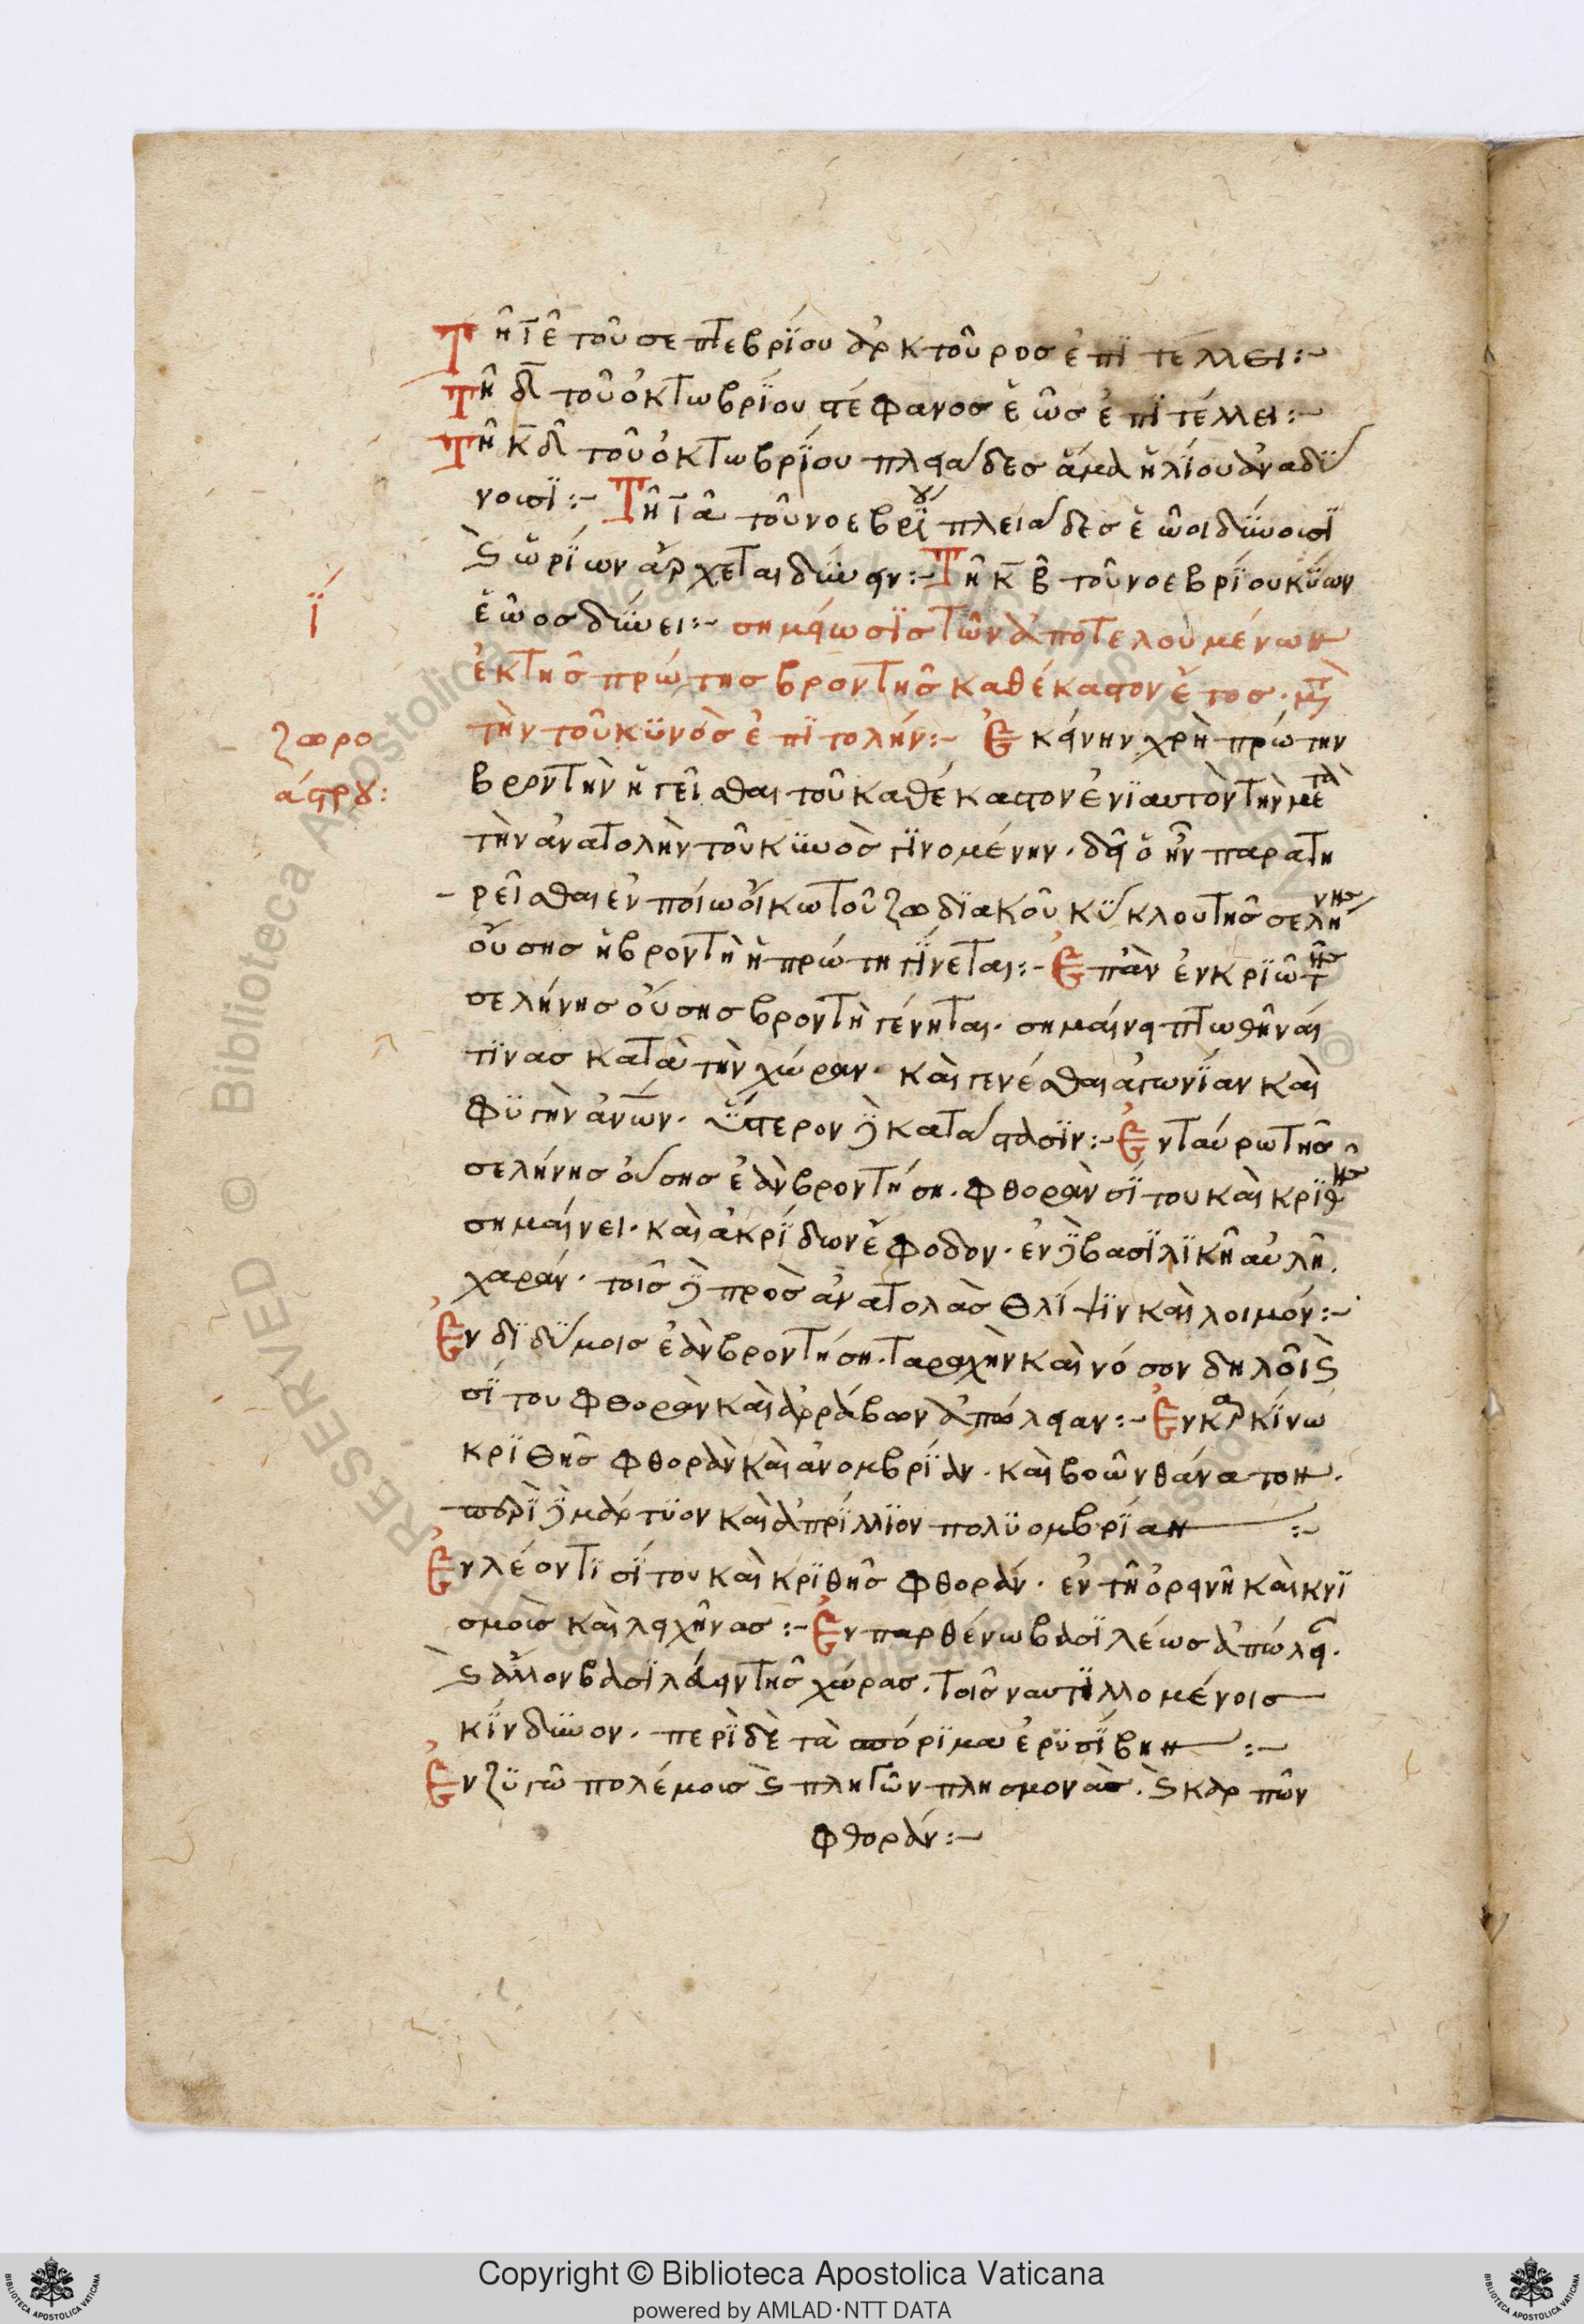 Τῆ ιε τοῦ σεπτεβρΐου ἀρκτοῦρος ἐπϊτέλλει:~
Τῆ δ τοῦ ὀκτωβρΐου στέφανος ἑῶς ἐπϊτέλλει:~
Τῆ κδ τοῦ ὀκτωβρΐου πλειάδες ἅμα ἡλΐου ἀναδΰ
νουσϊ:~ Τῆ ια τοῦ νοεβρΐου πλειάδες ἑῶοι δύνουσϊ
ϛ ὠρΐων ἄρχεται δύνειν:~ Τῆ κβ τοῦ νοεβρΐου κύων
ἑῶος δύνει:~ σημείωσϊς τῶν ἀποτελουμένων
ΐ
ἐκ τῆς πρώτης βροντῆς καθέκαστον ἔτος· μετὰ
τὴν τοῦ κϋνὸς ἐπϊτολήν:~ Ἐκείνην χρὴ πρώτην
ζωρο
άστρου:
βροντὴν ἡγεῖσθαι τοῦ καθέκαστον ἐνϊαυτὸν τὴν μετὰ
τὴν ἀνατολὴν τοῦ κυνὸς γϊνομένην· δεῖ οὖν παρατη
ρεῖσθαι ἐν ποίω οἴκω τοῦ ζωδϊακοῦ κΰκλου τῆς σελήνης
οὔσης ἡ βροντὴ ἡ πρώτη γΐνεται:~ Ἐπὰν ἐν κρϊῶ τῆς
σελήνης οὔσης βροντὴ γένηται· σημαίνει πτωθῆναί
τϊνας κατὰ τὴν χώραν· καὶ γενέσθαι ἀγωνΐαν καὶ
φϋγὴν ἀνων· ὕστερον δὲ κατάστασϊν:~ Ἐν ταύρω τῆς
σελήνης οὔσης ἐὰν βροντήση· φθορὰν σΐτου καὶ κρϊθῆς
σημαίνει· καὶ ἀκρΐδων ἔφοδον· ἐν δὲ βασϊλϊκῆ αὐλῆ·
χαράν· τοῖς δὲ πρὸς ἀνατολὰς θλΐψϊν καὶ λοιμόν:~
Ἐν δϊδΰμοις ἐὰν βροντήση· ταραχὴν καὶ νόσον δηλοῖ ϛ
σΐτου φθορὰν καὶ ἀρράβων ἀπώλειαν:~ Ἐν καρκΐνω
κρϊθῆς φθορὰν καὶ ἀνομβρΐαν· καὶ βοῶν θάνατον·
περὶ δὲ μάρτϋον καὶ ἀπρΐλλϊον πολϋομβρΐαν :~
Ἐν λέοντϊ σΐτου καὶ κρϊθῆς φθοράν· ἐν τῆ ὀρεινῆ καὶ κνϊ
σμοῖς καὶ λειχῆνας:~ Ἐν παρθένω βασϊλέως ἀπώλει·
ϛ ἄλλον βασϊλεύειν τῆς χώρας· τοῖς ναυτϊλλομένοις
κΐνδυνον· περϊ δὲ τὰ σπόρϊμα ἐρϋσΐβην :~
Ἐν ζϋγῶ πολέμοις ϛ πληγῶν πλησμονὰς· ϛ καρπῶν
φθοράν:~